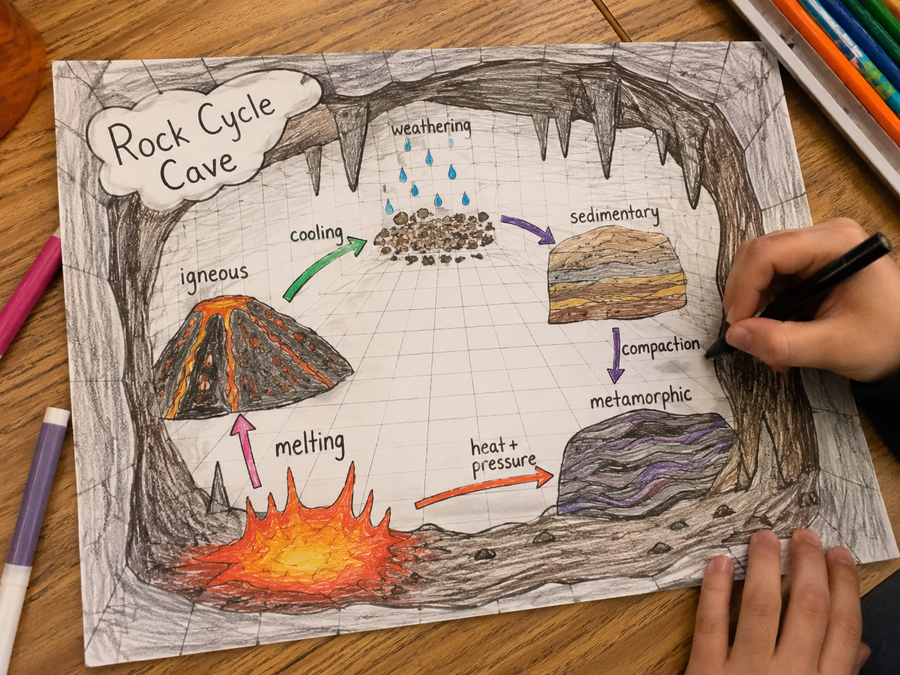 Rock Cycle
Cave
weathering
cooling
sedimentary
igneous
compaction
metamorphic
melting
heat +
pressure